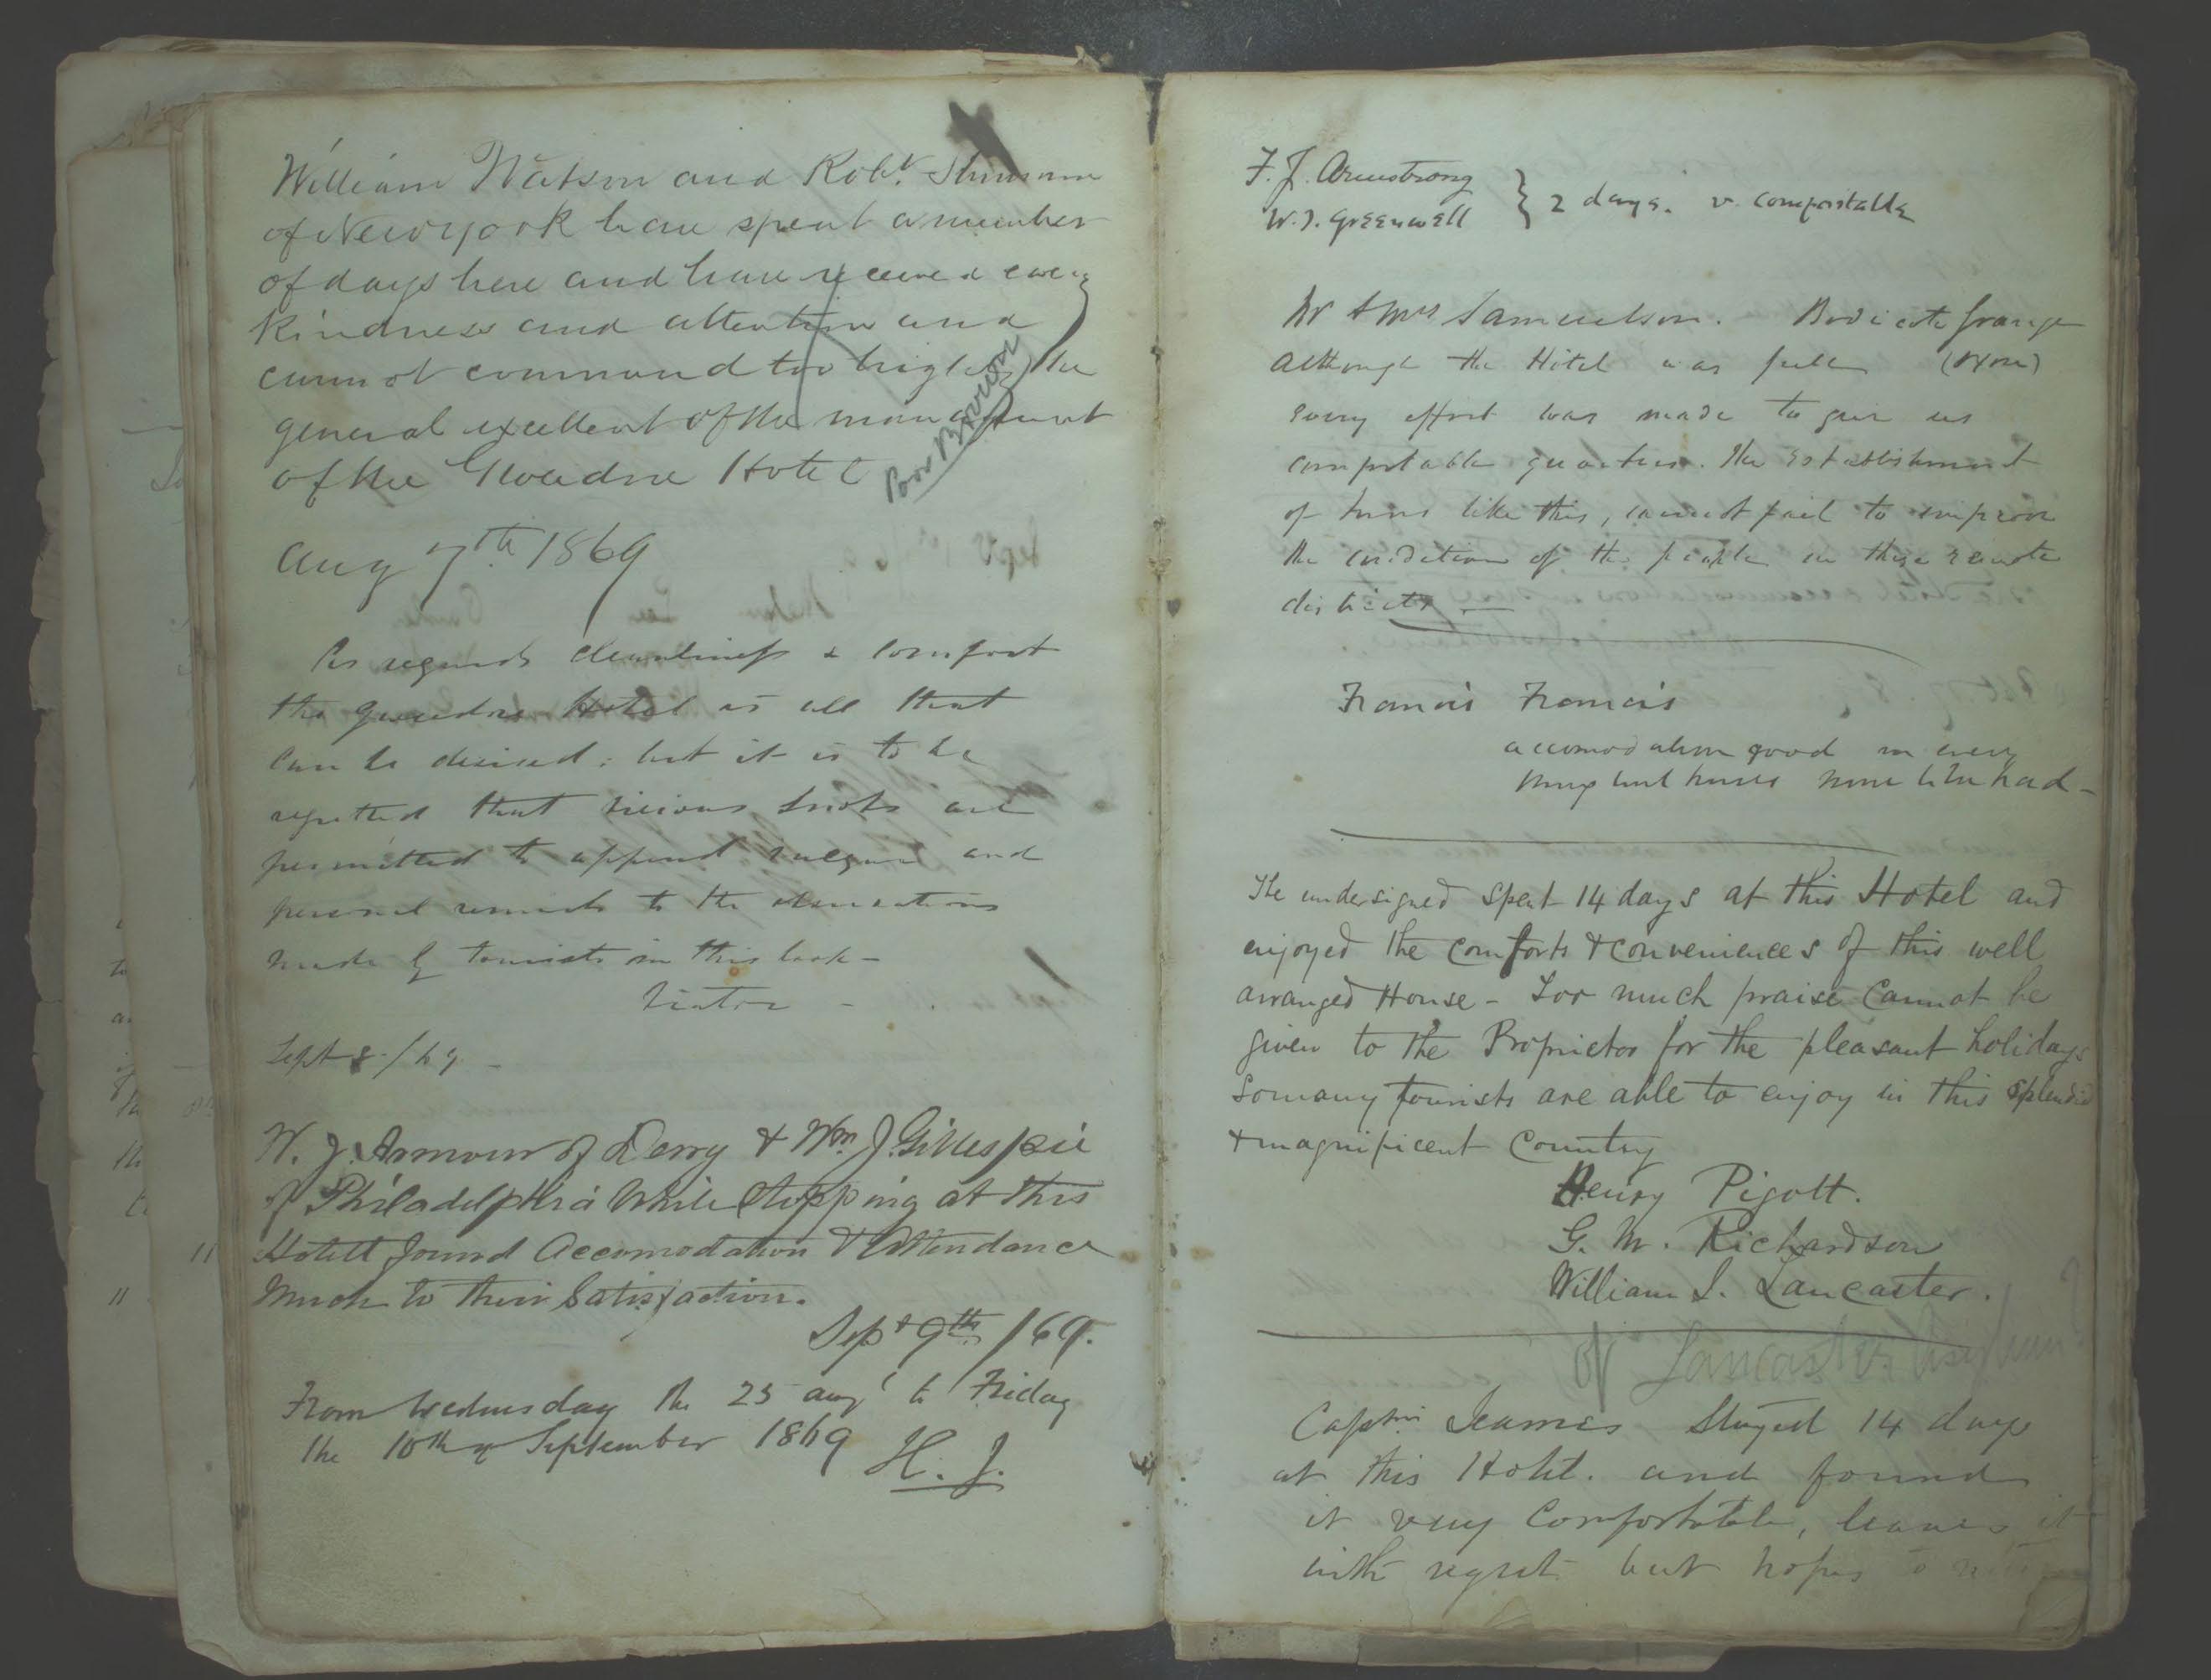 William Watson and Robt.
of New york have spent a number
of days here and have received every
Kindness and attention and
cannot command too highly the
general excellent of the management
of the Gweedore Hotel
Poor
Aug 7th 1869
As regards cleanliness & comfort
the Gweedore Hotel is all that
can be desired; but it is to be
regretted that vicious snobs are
permitted to append vulgar and
personal remarks to the observations
made by tourists in this book -
Viator -
Sept 8/69 -
W. J. Armour of Derry & Wm. J. Gillespie
of Philadelphia While Stopping at this
Hotell found Accomodation & Attendance
Much to their Satisfaction.
Sept 9th /69.
From Wednesday the 25 Augt to Friday
the 10th of September 1869
H. J.
F. J. Armstrong
W. J. Greenwell
} 2 days. v. comfortable
Mr & Mrs Samuelson. Bodicote Grange
Although the Hotel was full (Oxon)
every effort was made to give us
comfortable quarters. The establishment
of Inns like this, cannot fail to improve
the condition of the people in these remote
districts -
Francis Francis
accomodation good in every
thing but none to be had -
The undersigned spent 14 days at this Hotel and
enjoyed the comforts & conveniences of this well
arranged House - Too much praise cannot be
given to the Proprietor for the pleasant holidays
so many tourists are able to enjoy in this splendid
& magnificent Country
Henry Pigott.
G. M. Richardson
William I. Lancaster.
of Lancaster Asylum?
Captn. Jeames Stayed 14 days
at this Hotel. and found
it very Comfortable, leaves it
with regret but hopes to